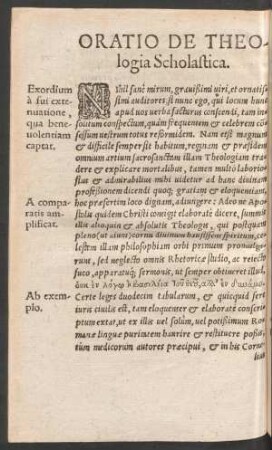 ORATIO DE THEO-
logia Scholastica.
Exordium
à sui exte-
nuatione,
qua bene-
uolentiam
captat.
A compa-
ratis am-
plificat.
Ab exem-
plo.
NIhil sanè mirum, grauißimi uiri, et ornatis-
simi auditores si nunc ego, qui locum hunc
apud uos uerba facturus conscendi, tam in-
solitum conspectum, quàm frequentem & celebrem con-
sessum uestrum totus reformidem. Nam etsi magnum
& difficile semper sit habitum, reginam & præsidem
omnium artium sacrosanctam illam Theologiam tra-
dere & explicare mortalibus, tamen multò laboriosi
us & admirabilius mihi uidetur ad hanc diuinam
professionem dicendi quoque gratiam & eloquentiam,
hoc præsertim loco dignam, adiungere: Adeo ne Apo-
stolis quidem Christi contigit elaboratè dicere, summis
illis alioquin & absolutis Theologis, qui postquam
lestem illam philosophiam orbi primum promulga-
runt, sed neglecto omnis Rhetoricæ studio, ac reiecto
fuco, apparatuque sermonis, ut semper obtineret illud,
Certe leges duodecim tabularum, & quicquid ferè
iuris ciuilis est, tam eloquenter & elaboratè conscri-
ptum extat, ut ex illis uel solùm, uel potißimum Ro-
manæ linguæ puritatem haurire & restituere possis,
tum medicorum autores præcipui, & in his Corne-